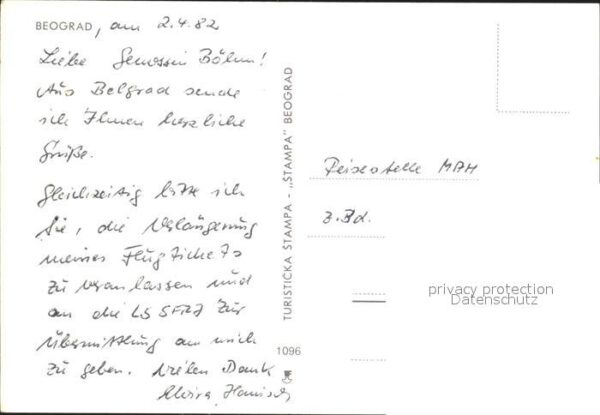 BEOGRAD, am 2.4.82
Liebe Genossin Böhm!
Aus Belgrad sende
ich Ihnen herzliche
Grüße.
Gleichzeitig bitte ich
Sie, die Verlängerung
meines Flugtickets
zu veranlassen und
an die LS SFRJ zur
Übermittlung an mich
zu geben. Vielen Dank
Elvira
TURISTIČKA ŠTAMPA - „ŠTAMPA" BEOGRAD
1096
Reisestelle MAH
z. Hd.
privacy protection
Datenschutz